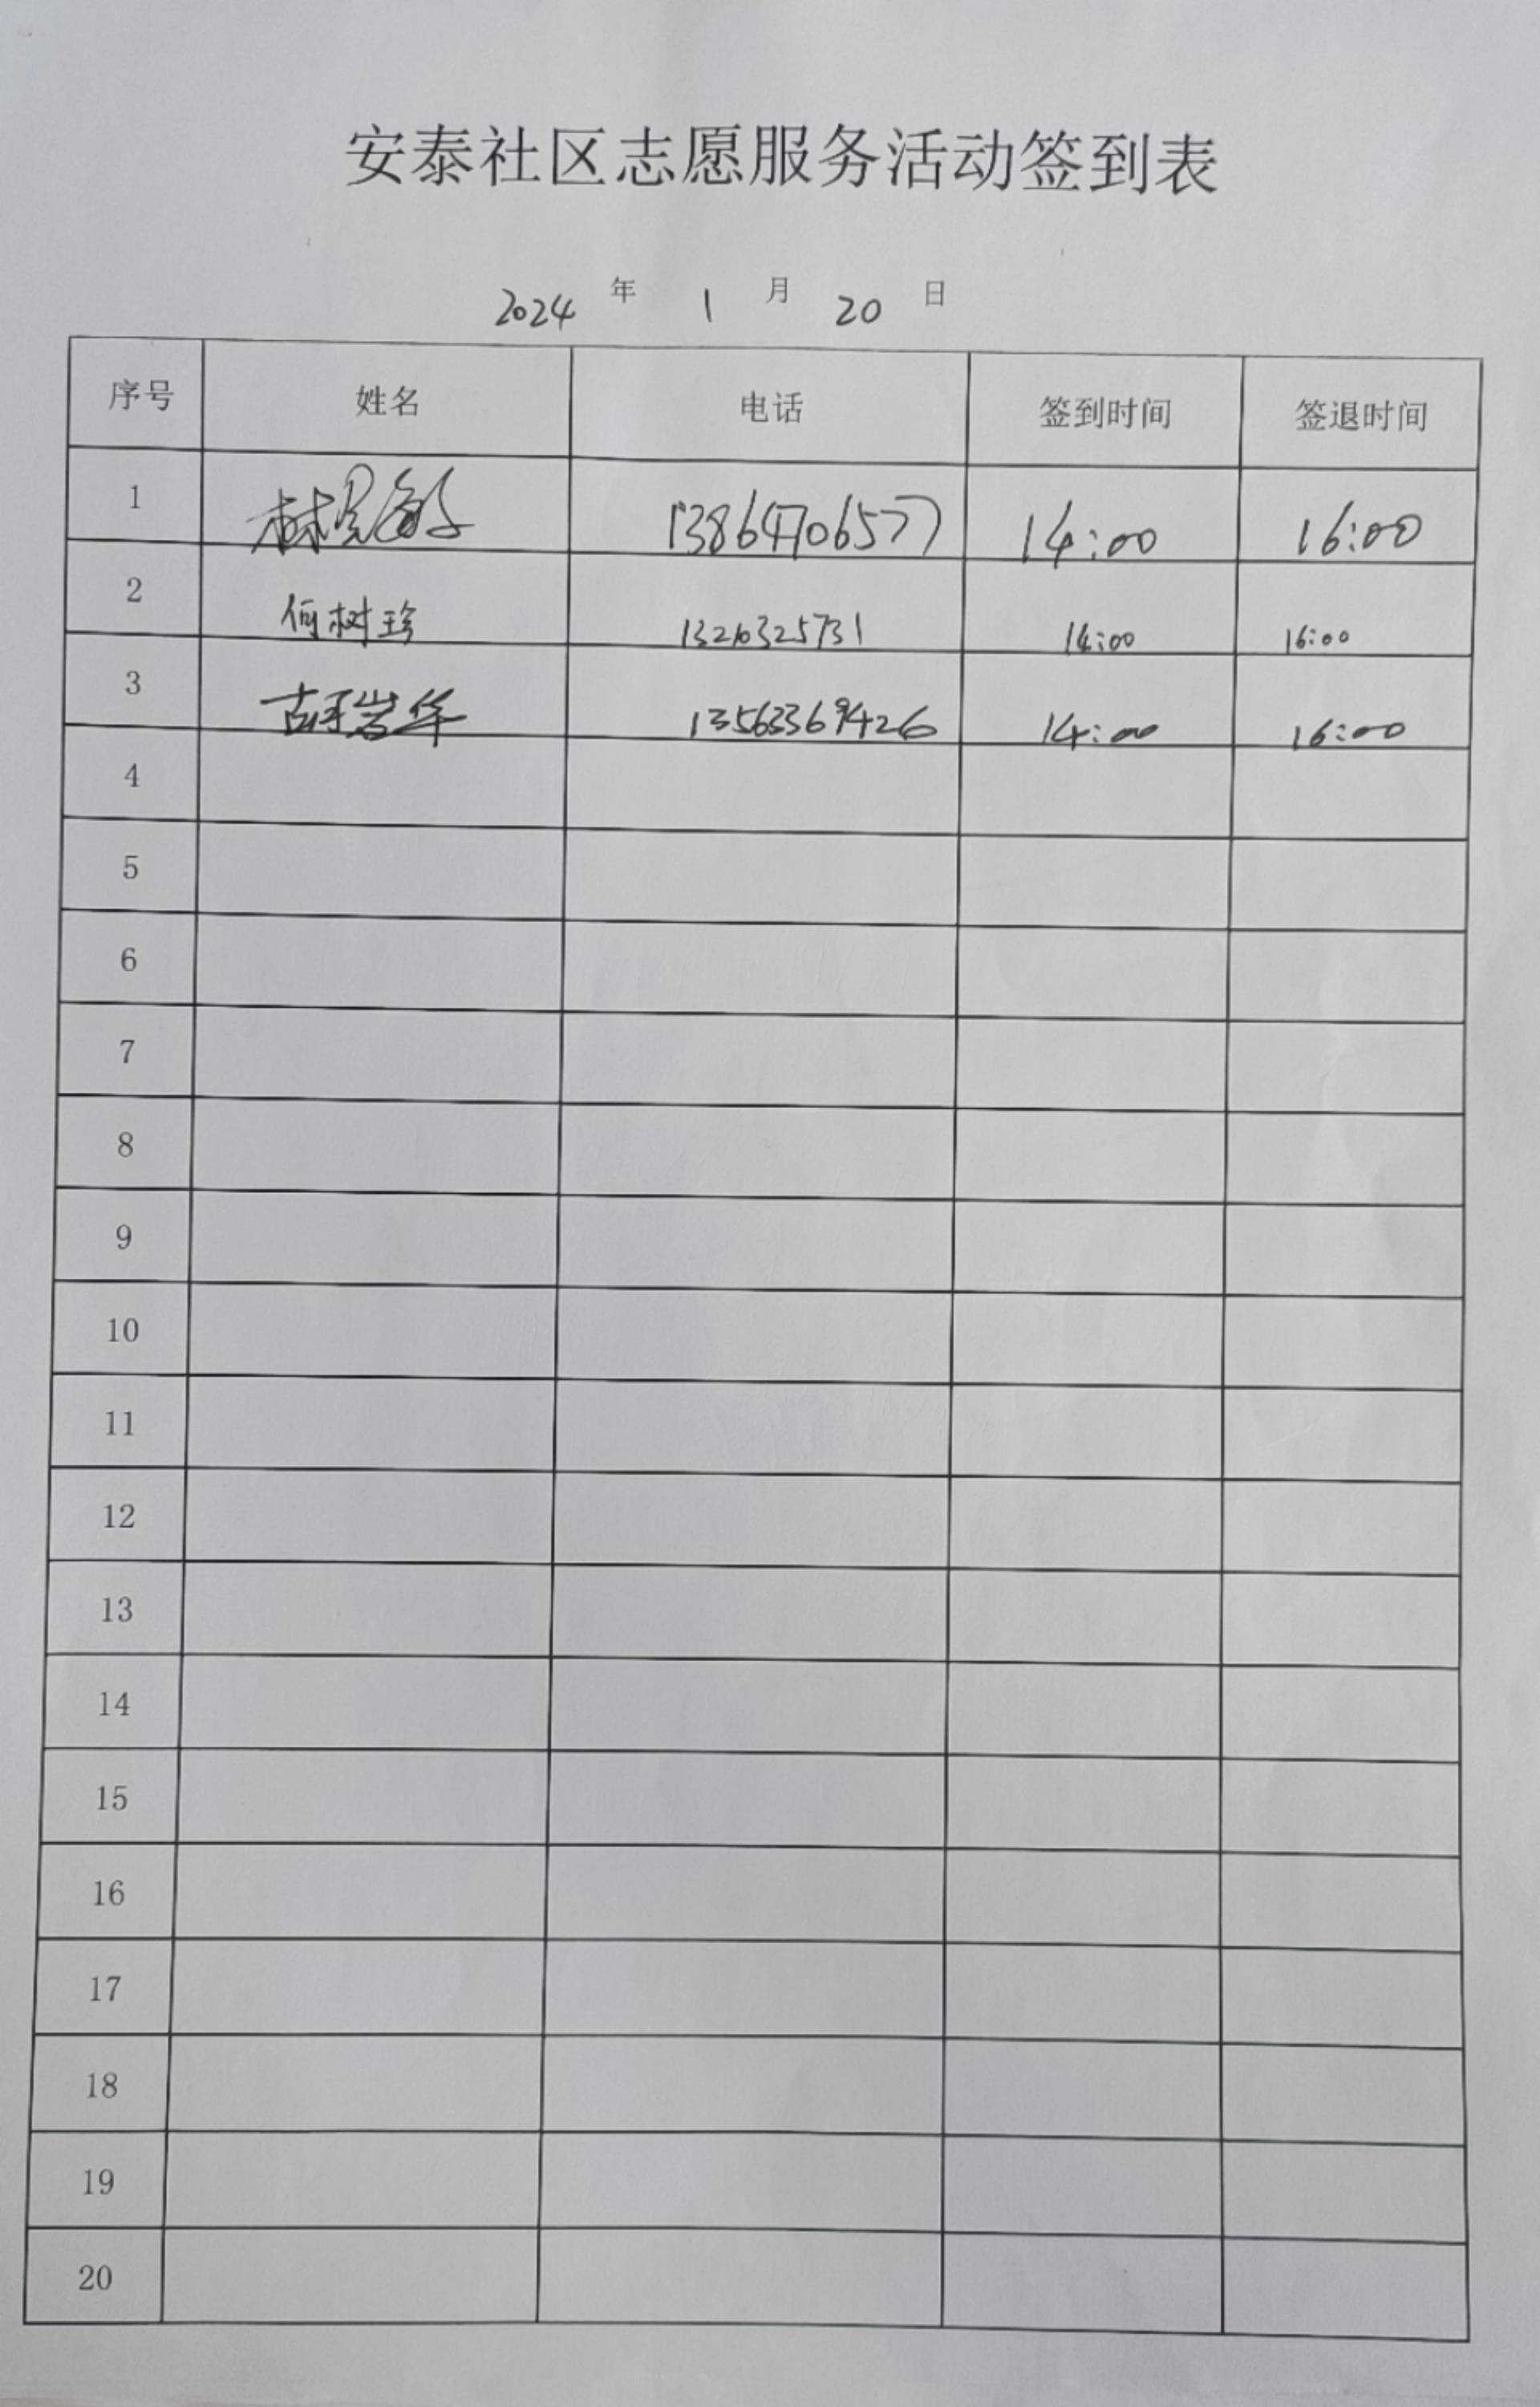 安泰社区志愿服务活动签到表
2024 年 1 月 20 日
序号 姓名 电话 签到时间 签退时间
1 13864706577 14:00 16:00
2 何树珍 14:00 16:00
3 13563369426 14:00 16:00
4
5
6
7
8
9
10
11
12
13
14
15
16
17
18
19
20